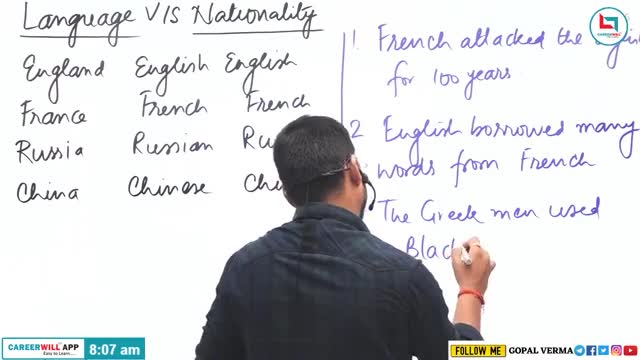 Language V/S Nationality
England English English
France French French
Russia Russian
China Chinese
1. French attacked the
for 100 years.
2 English borrowed many
words from French
The Greek men used
CAREERWILL
CAREERWILL APP
Easy to Learn....
8:07 am
FOLLOW ME GOPAL VERMA